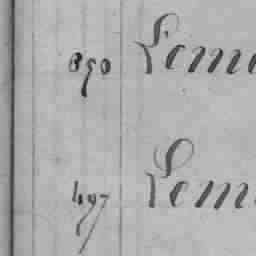 890 Lem
497 Lem